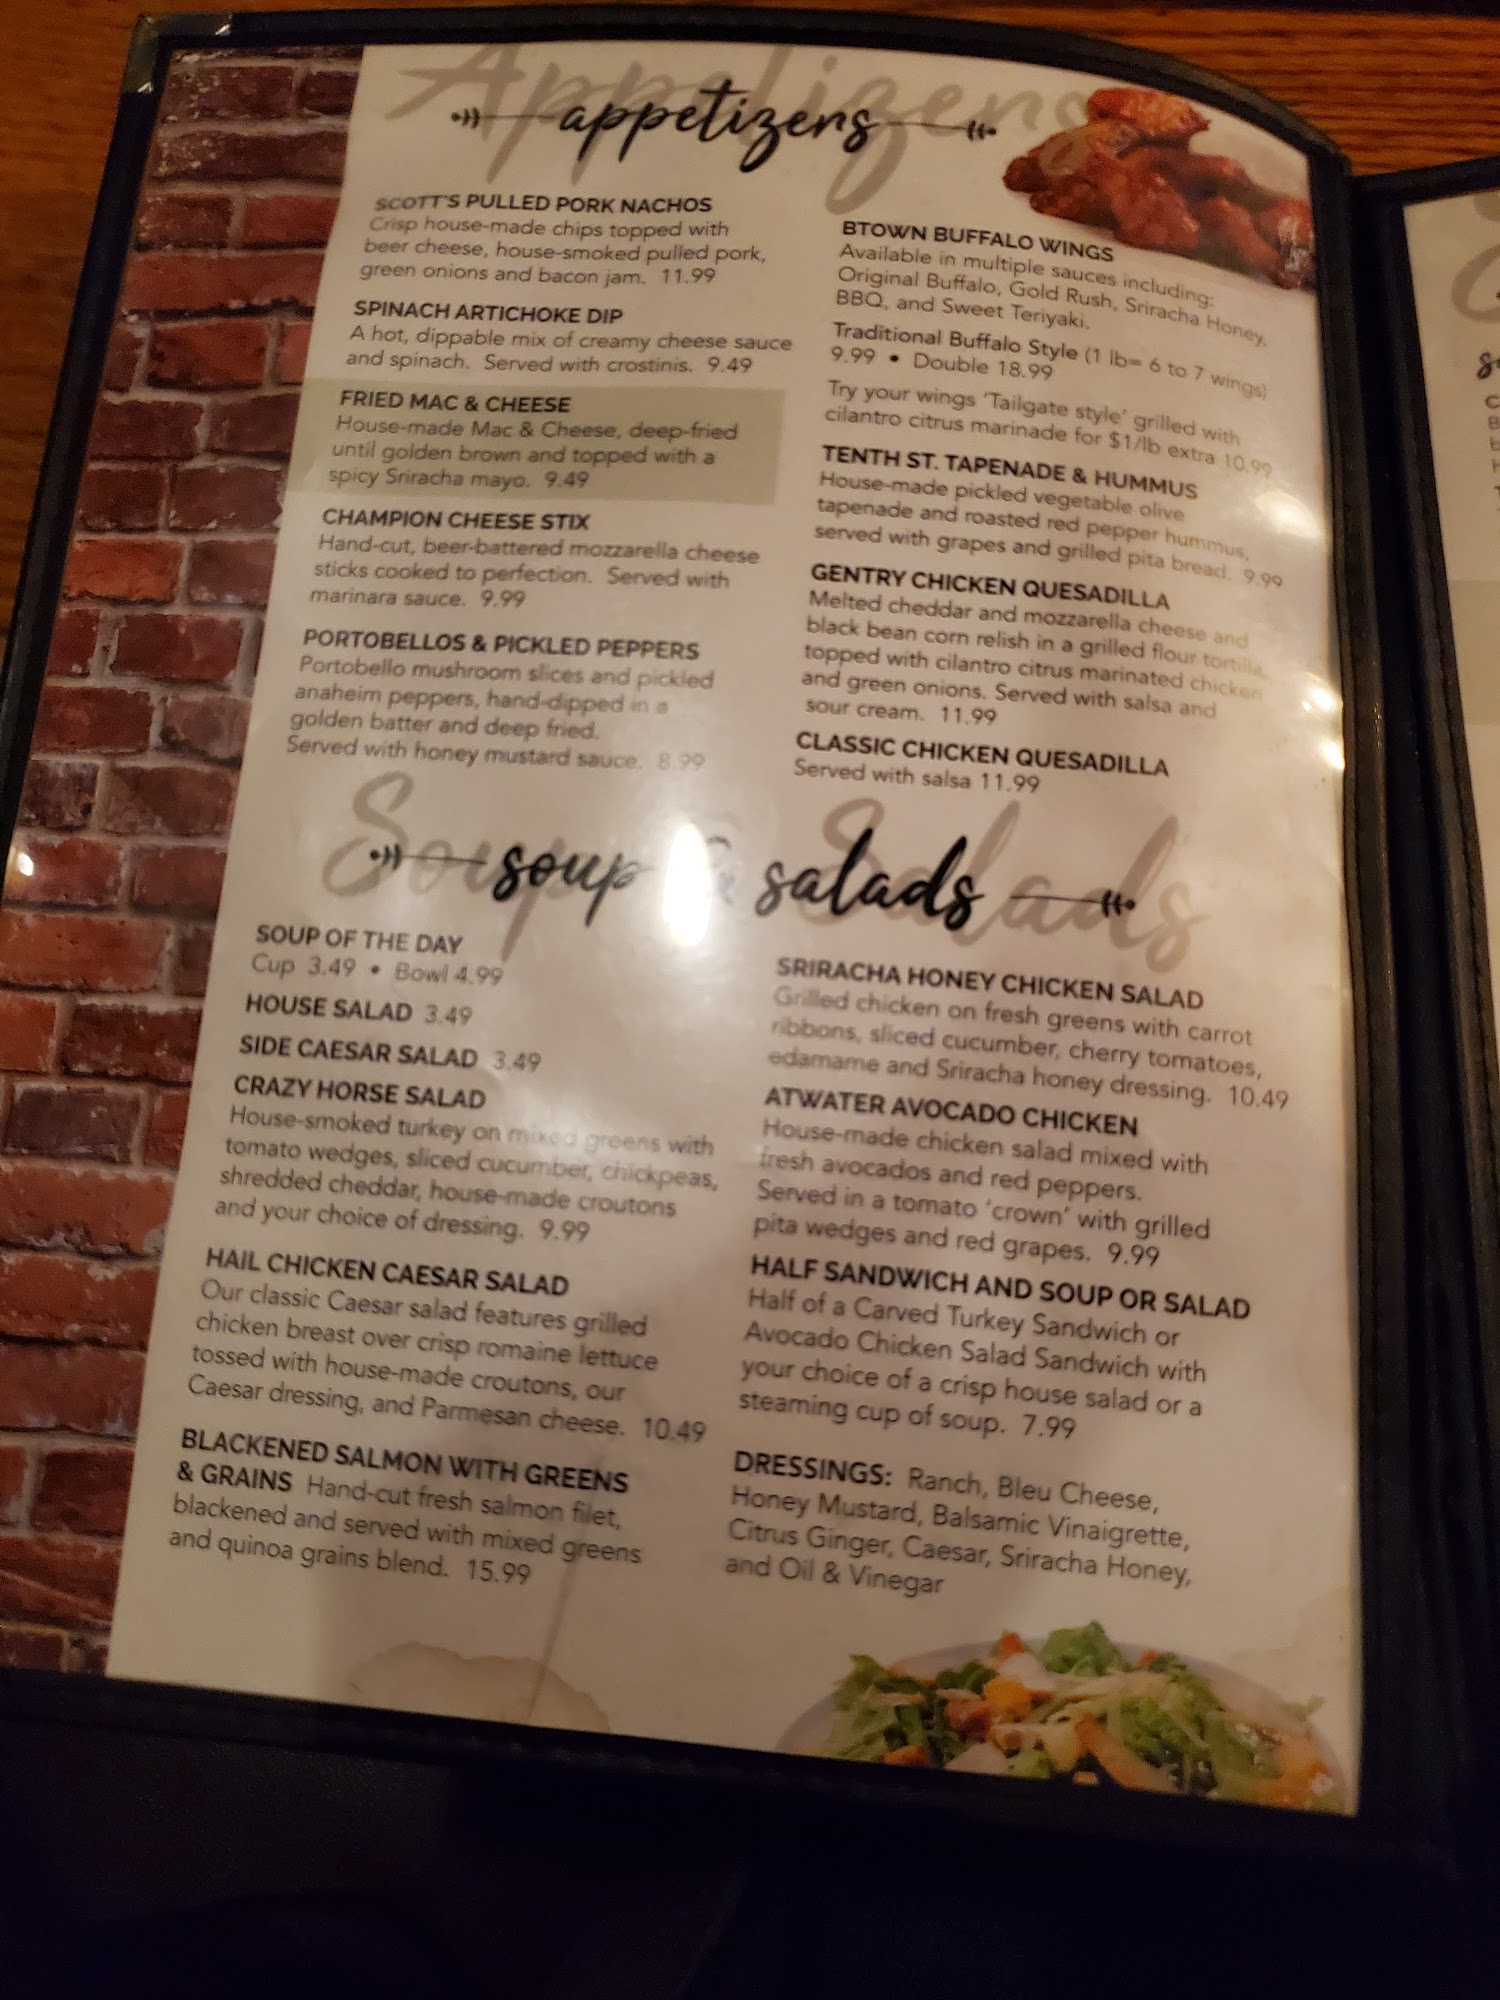 Appetizers
appetizers
SCOTT'S PULLED PORK NACHOS
Crisp house-made chips topped with
beer cheese, house-smoked pulled pork,
green onions and bacon jam. 11.99
SPINACH ARTICHOKE DIP
A hot, dippable mix of creamy cheese sauce
and spinach. Served with crostinis. 9.49
FRIED MAC & CHEESE
House-made Mac & Cheese, deep-fried
until golden brown and topped with a
spicy Sriracha mayo. 9.49
CHAMPION CHEESE STIX
Hand-cut, beer-battered mozzarella cheese
sticks cooked to perfection. Served with
marinara sauce. 9.99
PORTOBELLOS & PICKLED PEPPERS
Portobello mushroom slices and pickled
anaheim peppers, hand-dipped in a
golden batter and deep fried.
Served with honey mustard sauce. 8.99
BTOWN BUFFALO WINGS
Available in multiple sauces including:
Original Buffalo, Gold Rush, Sriracha Honey,
BBQ, and Sweet Teriyaki.
Traditional Buffalo Style (1 lb= 6 to 7 wings)
9.99 • Double 18.99
Try your wings 'Tailgate style' grilled with
cilantro citrus marinade for $1/lb extra 10.99
TENTH ST. TAPENADE & HUMMUS
House-made pickled vegetable olive
tapenade and roasted red pepper hummus,
served with grapes and grilled pita bread. 9.99
GENTRY CHICKEN QUESADILLA
Melted cheddar and mozzarella cheese and
black bean corn relish in a grilled flour tortilla,
topped with cilantro citrus marinated chicken
and green onions. Served with salsa and
sour cream. 11.99
CLASSIC CHICKEN QUESADILLA
Served with salsa 11.99
Soup & Salads
soup & salads
SOUP OF THE DAY
Cup 3.49 • Bowl 4.99
HOUSE SALAD 3.49
SIDE CAESAR SALAD 3.49
CRAZY HORSE SALAD
House-smoked turkey on mixed greens with
tomato wedges, sliced cucumber, chickpeas,
shredded cheddar, house-made croutons
and your choice of dressing. 9.99
HAIL CHICKEN CAESAR SALAD
Our classic Caesar salad features grilled
chicken breast over crisp romaine lettuce
tossed with house-made croutons, our
Caesar dressing, and Parmesan cheese. 10.49
BLACKENED SALMON WITH GREENS
& GRAINS Hand-cut fresh salmon filet,
blackened and served with mixed greens
and quinoa grains blend. 15.99
SRIRACHA HONEY CHICKEN SALAD
Grilled chicken on fresh greens with carrot
ribbons, sliced cucumber, cherry tomatoes,
edamame and Sriracha honey dressing. 10.49
ATWATER AVOCADO CHICKEN
House-made chicken salad mixed with
fresh avocados and red peppers.
Served in a tomato 'crown' with grilled
pita wedges and red grapes. 9.99
HALF SANDWICH AND SOUP OR SALAD
Half of a Carved Turkey Sandwich or
Avocado Chicken Salad Sandwich with
your choice of a crisp house salad or a
steaming cup of soup. 7.99
DRESSINGS: Ranch, Bleu Cheese,
Honey Mustard, Balsamic Vinaigrette,
Citrus Ginger, Caesar, Sriracha Honey,
and Oil & Vinegar